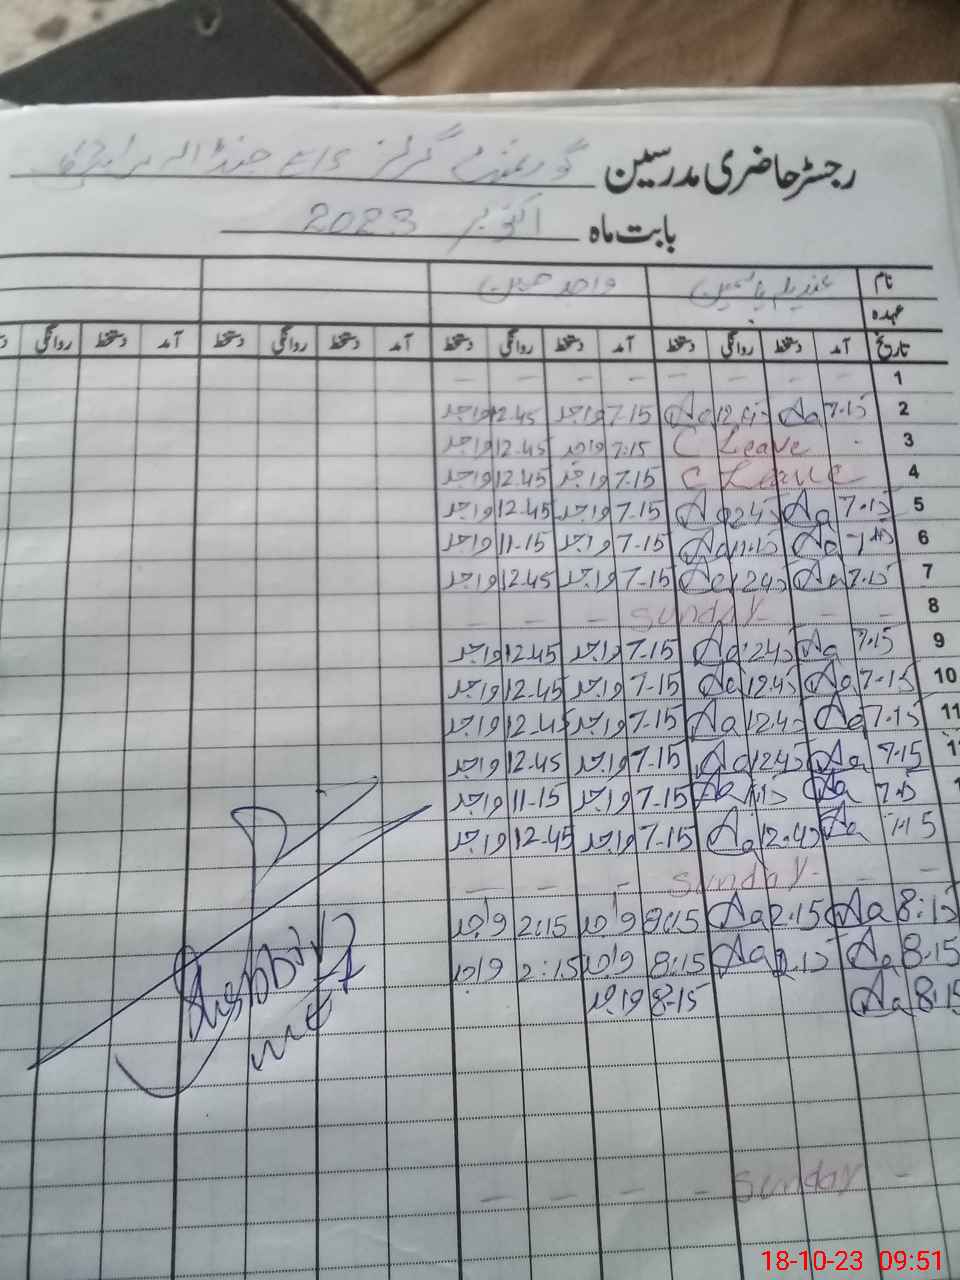 رجسٹر حاضری مدرسین گورنمنٹ گرلز E/S جنڈالہ
بابت ماہ اکتوبر 2023
نام عندیلم یاسمین واجد حسین
عہدہ
تاریخ آمد دستخط روانگی دستخط آمد دستخط روانگی دستخط آمد دستخط روانگی دستخط آمد دستخط روانگی
1 - - - - - - - -
2 7.15 Aa 12.45 Aa 7-15 واجد 12.45 واجد
3 C Leave 7:15 واجد 12-45 واجد
4 C Leave 7.15 واجد 12.45 واجد
5 7.15 Aa 12.45 Aa 7-15 واجد 12-45 واجد
6 Aa 11.15 Aa 7-15 واجد 11-15 واجد
7 7.15 Aa 12.45 Aa 7-15 واجد 12.45 واجد
8 - - Sunday - - - -
9 7.15 Aa 12.45 Aa 7-15 واجد 12.45 واجد
10 7-15 Aa 12.45 Aa 7-15 واجد 12-45 واجد
11 7.15 Aa 12.45 Aa 7-15 واجد 12-45 واجد
7.15 Aa 12.45 Aa 7-15 واجد 12-45 واجد
7.15 Aa 11.15 Aa 7-15 واجد 11-15 واجد
7.15 Aa 12.45 Aa 7-15 واجد 12-45 واجد
- - Sunday - - - -
8:15 Aa 2.15 Aa 8:15 واجد 2:15 واجد
8.15 Aa 2.15 Aa 8:15 واجد 2:15 واجد
8.15 Aa 8-15 واجد
- Sunday - - - -
18-10-23 09:51